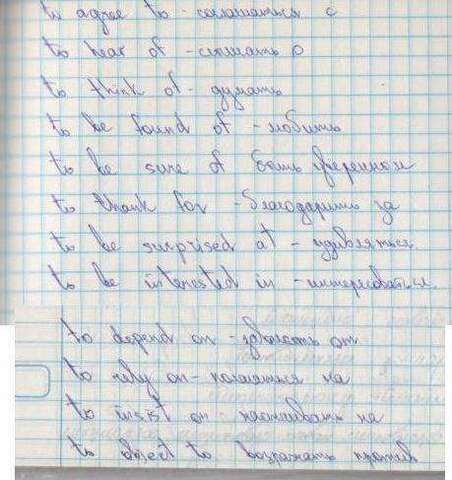 to agree to - соглашаться с
to hear of - слышать о
to think of - думать
to be found of - любить
to be sure of быть уверенной
to thank for - благодарить за
to be surprised at - удивляться
to be interested in - интересоваться
to depend on - зависеть от
to rely on - полагаться на
to insist on - настаивать на
to object to возражать против